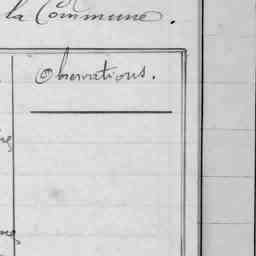 la Commune.
Observations.